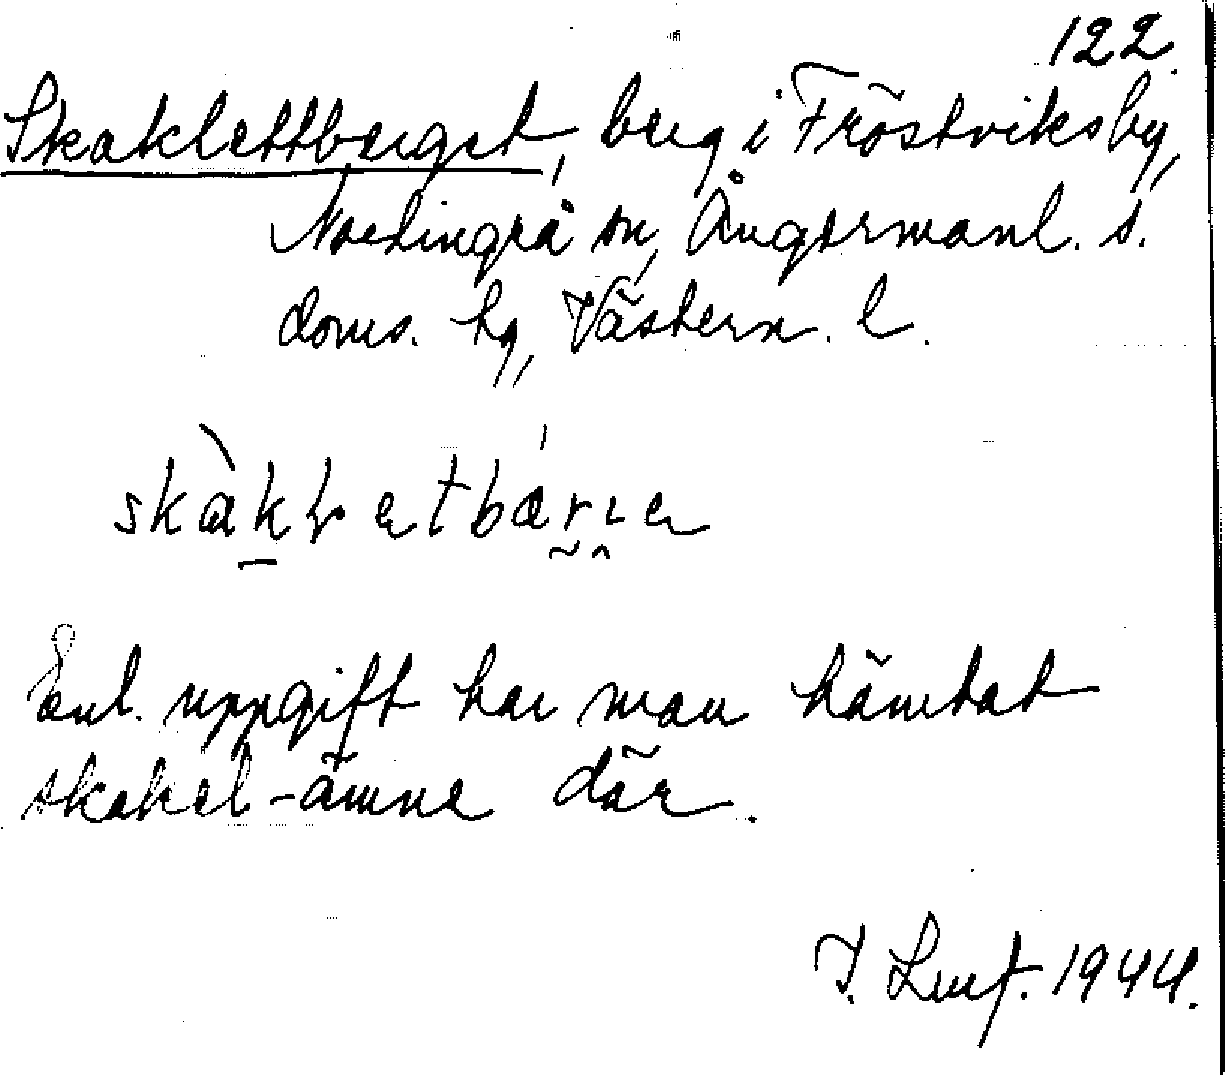 122.
Skaklettberget, berg i Fröstviks by,
Nordingrå sn, Ångermanl. s.
doms. hg, Västern. l.
Enl. uppgift har man hämtat
skakel-ämne där.
1944.